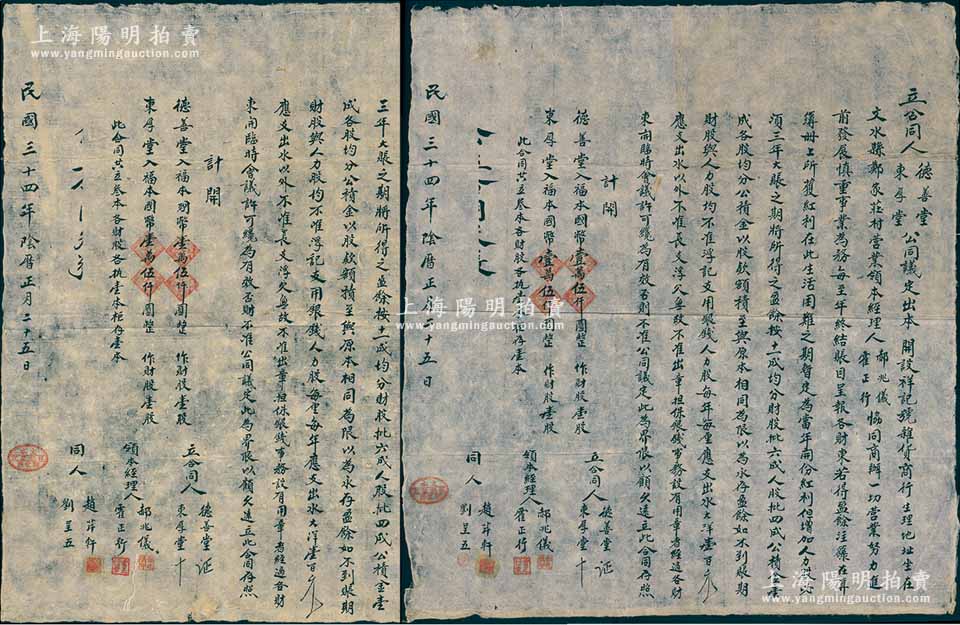 上海陽明拍賣
www.yangmingauction.com
立合同人 德善堂 東厚堂 公同議定出本 開設祥記號雜貨商行生理地址坐在
文水縣鄭家莊村營業領本經理人 郝兆儀 霍正行 協同商辦一切營業努力進
前發展慎重事業為務每至年終結賬目呈報各財東若得盈餘注蓀在年
簿冊上所獲紅利在此生活困難之期暫定為當年雨份紅利但增加人力股
須三年大賬之期將所得之盈餘按十一成均分財股批六成人股批四成公積金壹
成各股均分公積金以股欵額積至與原本相同為限以為永存盈餘如不到賬期
財股與人力股均不准浮記支用銀錢人力股每年每厘應支出水大洋壹百元
應支出水以外不准長支浮欠無故不准出章担保銀錢事務設有用章者經過各財
東向臨時會議許可纔為有效否則不准公同議定此為界限以顧久遠立此合同存照
計開
德善堂入福本國幣壹萬伍仟圓整 作財股壹股
東厚堂入福本國幣壹萬伍仟圓整 作財股壹股
此合同共立叁本各財股各执壹本柜存壹本
立合同人 德善堂 東厚堂 十 证
領本經理人 郝兆儀 霍正行
同人 趙萍軒 劉呈五
民國三十四年陰曆正月二十五日
三年大賬之期將所得之盈餘按十一成均分財股批六成人股批四成公積金壹
成各股均分公積金以股欵額積至與原本相同為限以為永存盈餘如不到賬期
財股與人力股均不准浮記支用銀錢人力股每厘每年應支出水大洋壹百元
應支出水以外不准長支浮欠無故不准出章担保銀錢事務設有用章者經過各財
東向臨時會議許可纔為有效否則不准公同議定此為界限以顧久遠立此合同存照
計開
德善堂入福本國幣壹萬伍仟圓整 作財股壹股
東厚堂入福本國幣壹萬伍仟圓整 作財股壹股
此合同共立叁本各財股各执壹本柜存壹本
立合同人 德善堂 東厚堂 十 证
領本經理人 郝兆儀 霍正行
同人 趙萍軒 劉呈五
民國三十四年陰曆正月二十五日